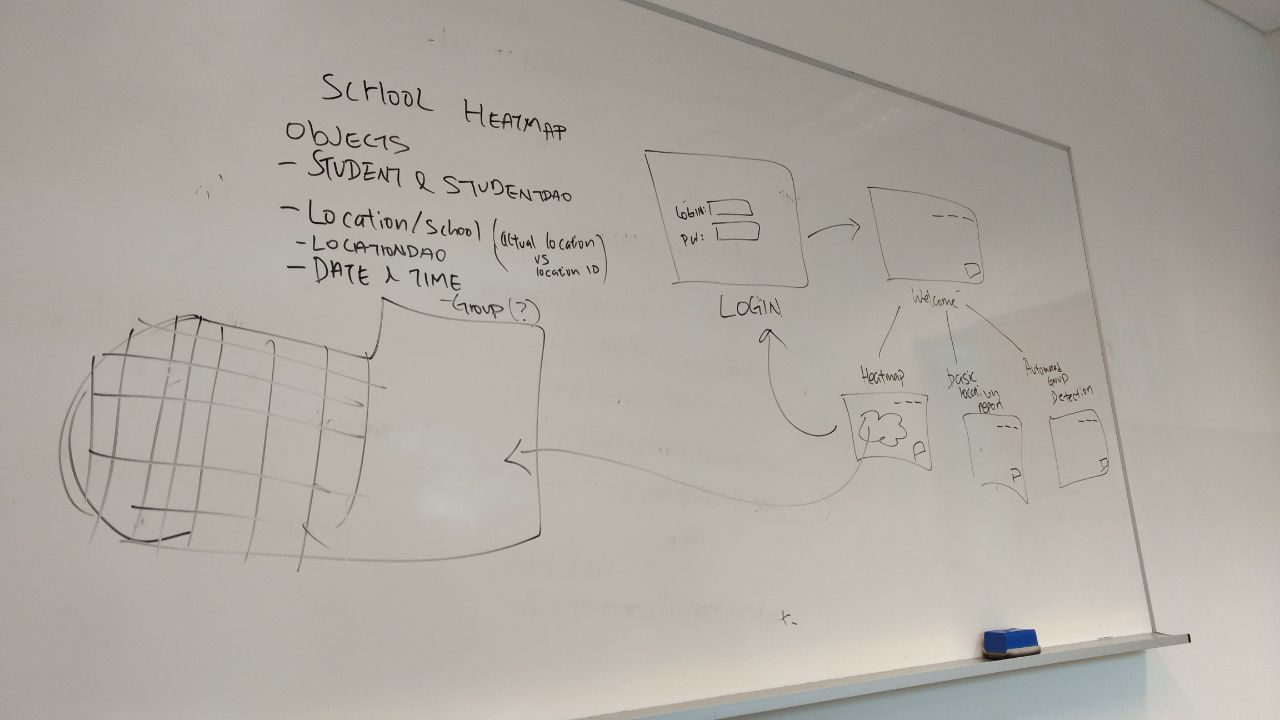 SCHOOL HEATMAP
ObJECTS
- STUDENT & STUDENTDAO
- Location/School (actual location
vs
location ID)
- LOCATIONDAO
- DATE & TIME
- Group (?)
Login:
pw:
LOGIN
Welcome
Heatmap
basic
location
report
Automated
Group
Detection